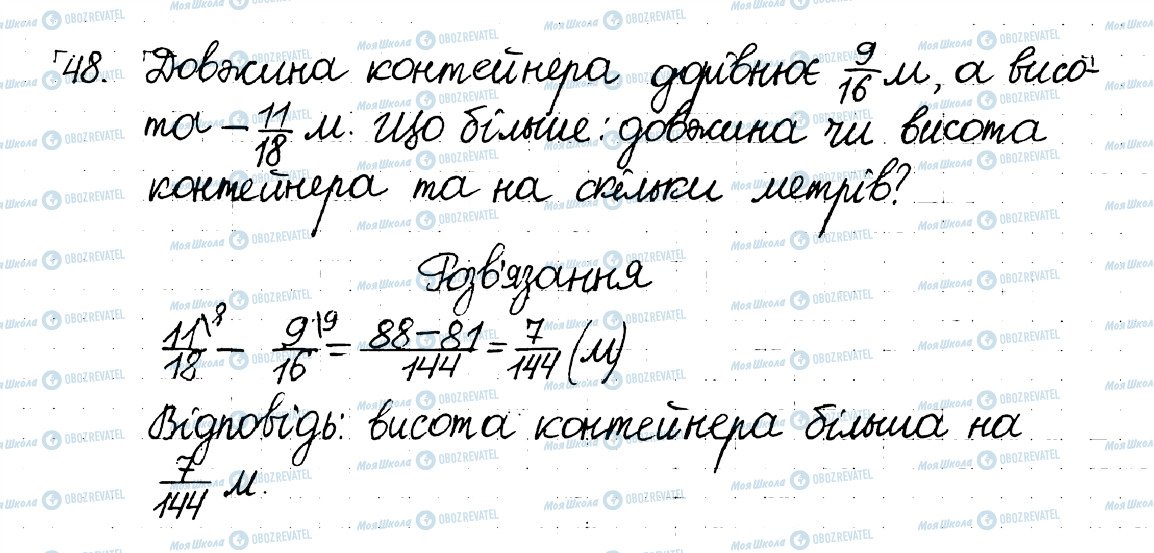 48. Довжина контейнера дорівнює 9/16 м, а висо-
та – 11/18 м. Що більше: довжина чи висота
контейнера та на скільки метрів?
Розв'язання
11/18\8 – 9/16\9 = 88–81/144 = 7/144 (м)
Відповідь: висота контейнера більша на
7/144 м.